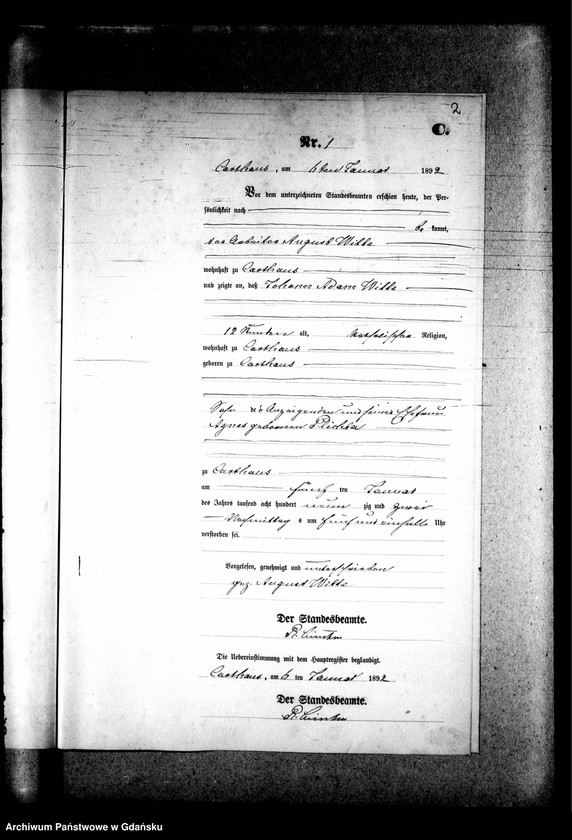 2
C.
Nr. 1
Carthaus, am 6 ten Januar 1892
Vor dem unterzeichneten Standesbeamten erschien heute, der Per-
sönlichkeit nach
be kannt,
der Arbeiter August Witte
wohnhaft zu Carthaus
und zeigte an, daß Johann Adam Witte
12 Stunden alt, katholischer Religion,
wohnhaft zu Carthaus
geboren zu Carthaus
Sohn des Anzeigenden und seiner Ehefrau
Agnes geborenen Plichta
zu Carthaus
am fünf ten Januar
des Jahres tausend acht hundert neun zig und zwei
Nachmittag s um fünf und einhalb Uhr
verstorben sei.
Vorgelesen, genehmigt und unterschrieben
gez. August Witte
Der Standesbeamte.
Die Uebereinstimmung mit dem Hauptregister beglaubigt.
Carthaus, am 6 ten Januar 1892
Der Standesbeamte.
Archiwum Państwowe w Gdańsku